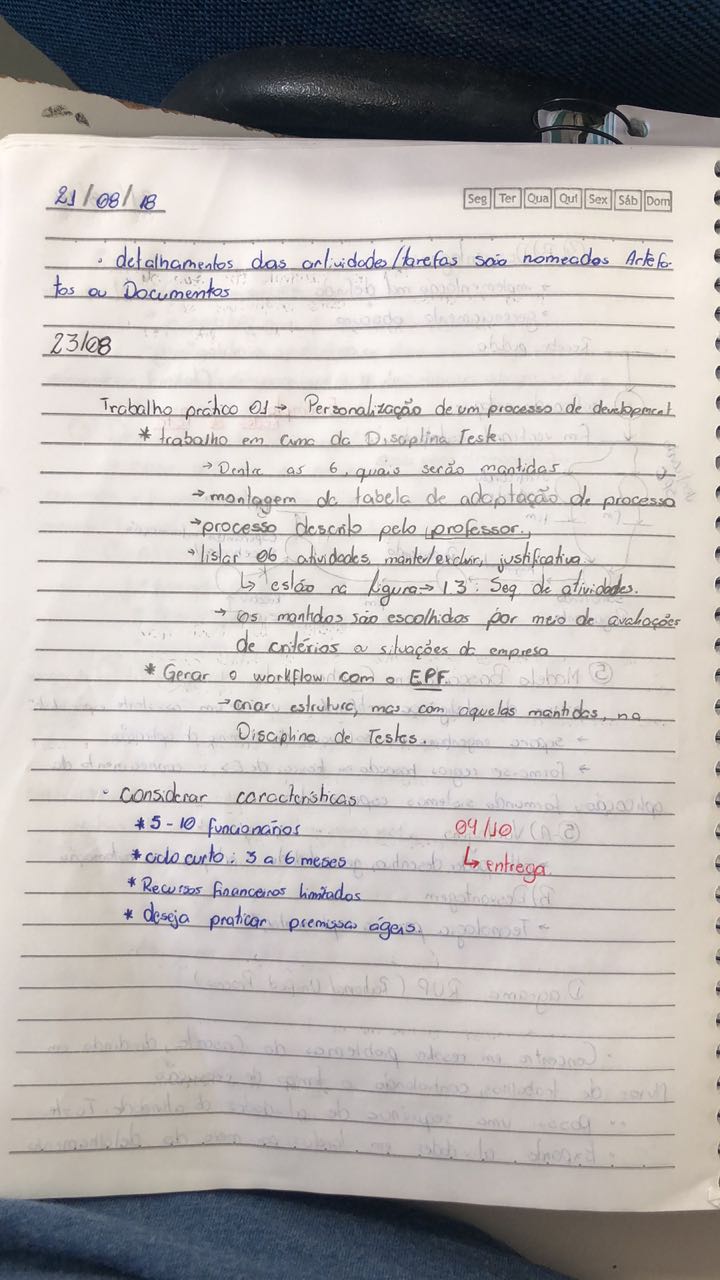 21/08/18
Seg Ter Qua Qui Sex Sáb Dom
· detalhamentos das atividades/tarefas são nomeados Artefa-
tos ou Documentos
23/08
Trabalho prático 01 → Personalização de um processo de development
* trabalho em cima da Disciplina Teste.
→ Dentre as 6, quais serão mantidas.
→ montagem da tabela de adaptação de processo
→ processo descrito pelo professor.
→ listar 06 atividades, manter/excluir, justificativa.
↳ estão na figura → 1.3: Seq de atividades.
→ os mantidos são escolhidos por meio de avaliações
de critérios a situações da empresa
* Gerar o workflow com o EPF
→ criar estrutura, mas com aquelas mantidas, na
Disciplina de Testes.
· considerar características
* 5 - 10 funcionários
04/10
* ciclo curto: 3 a 6 meses
↳ entrega.
* Recursos financeiros limitados
* deseja praticar premissas ágeis.